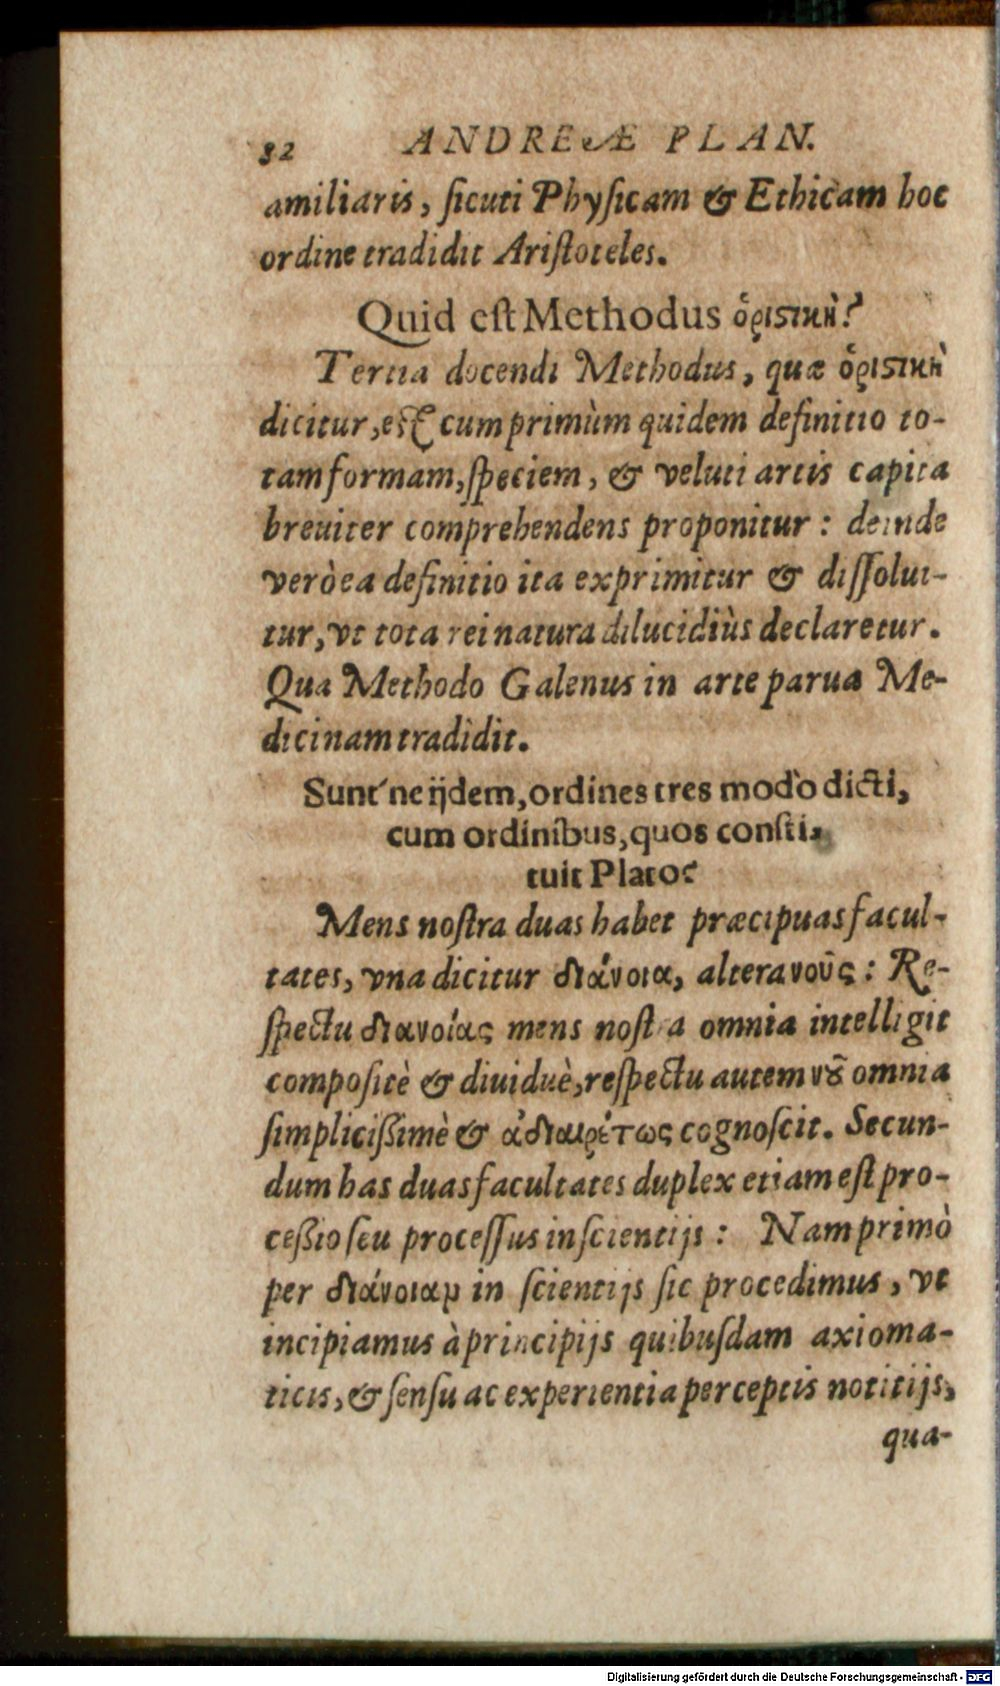 82 ANDREÆ PLAN.
amiliaris, ſicuti Phyſicam & Ethicam hoc
ordine tradidit Ariſtoteles.
Quid eſt Methodus ὁριϛικὴ?
Tertia docendi Methodus, quæ ὁριϛικὴ
dicitur, eſt cum primùm quidem definitio to-
tam formam, ſpeciem, & veluti artis capita
breuiter comprehendens proponitur: deinde
verò ea definitio ita exprimitur & diſſolui-
tur, vt tota rei natura dilucidiùs declaretur.
Qua Methodo Galenus in arte parua Me-
dicinam tradidit.
Sunt'ne ijdem, ordines tres modò dicti,
cum ordinibus, quos conſti-
tuit Plato?
Mens noſtra duas habet præcipuas facul-
tates, vna dicitur διάνοια, altera νοῦς: Re-
ſpectu διανοίας mens noſtra omnia intelligit
compoſitè & diuiduè, reſpectu autem νȣ͂ omnia
ſimpliciſſimè & ἀδιαιρέτως cognoſcit. Secun-
dum has duas facultates duplex etiam eſt pro-
ceſſio ſeu proceſſus in ſcientijs: Nam primò
per διάνοιαμ in ſcientijs ſic procedimus, vt
incipiamus à principijs quibuſdam axioma-
ticis, & ſenſu ac experientia perceptis notitijs,
qua-
Digitalisierung gefördert durch die Deutsche Forschungsgemeinschaft - DFG